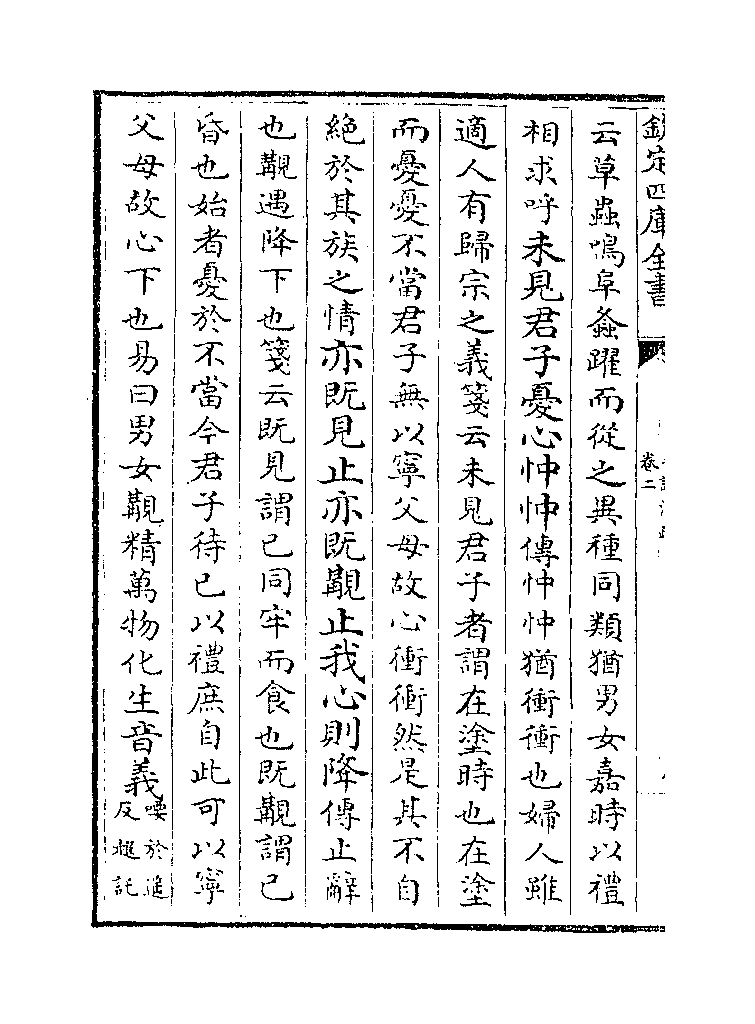 欽定四庫全書
卷二
云草蟲鳴阜螽躍而從之異種同類猶男女嘉時以禮
相求呼未見君子憂心忡忡傳忡忡猶衝衝也婦人雖
適人有歸宗之義箋云未見君子者謂在塗時也在塗
而憂憂不當君子無以寧父母故心衝衝然是其不自
絶於其族之情亦既見止亦既覯止我心則降傳止辭
也覯遇降下也箋云既見謂已同牢而食也既覯謂已
昏也始者憂於不當今君子待已以禮庶自此可以寧
父母故心下也易曰男女覯精萬物化生音義喓於遥
反趯託